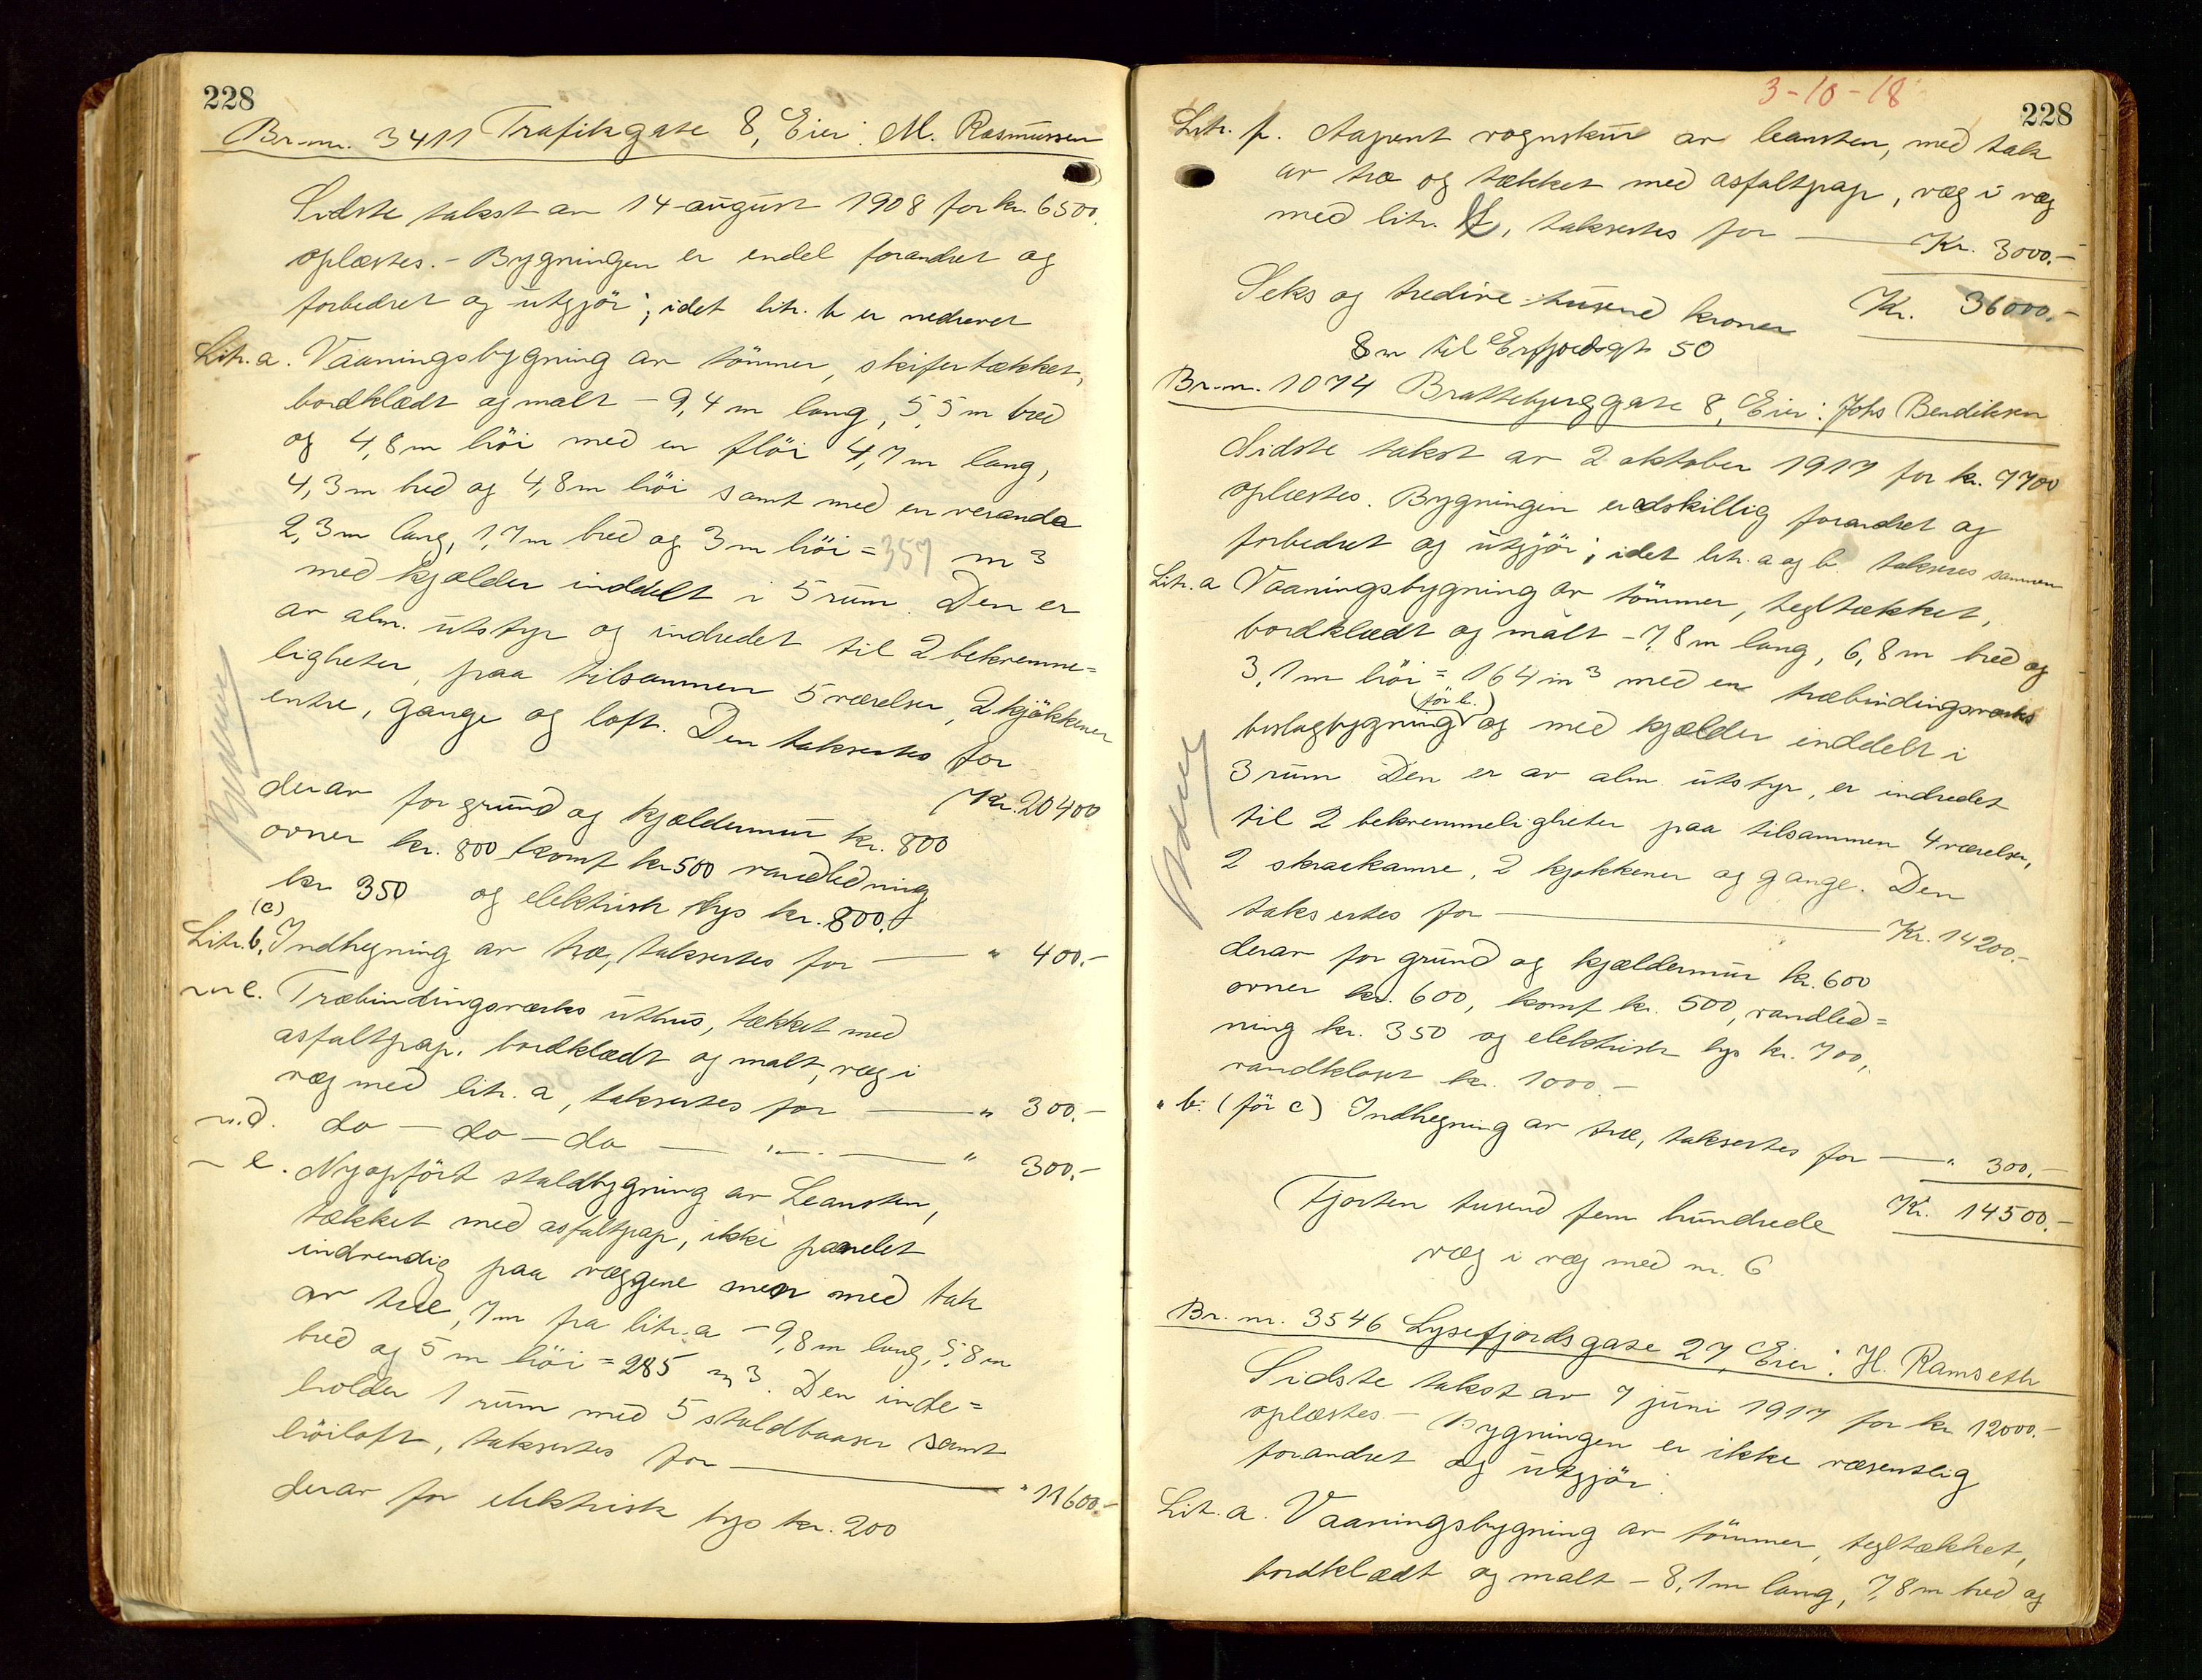 228
Br.nr. 3411 Trafikgate 8, Eier: M. Rasmussen
Sidste takst av 14 august 1908 for kr. 6500.
oplæstes. - Bygningen er endel forandret og
forbedret og utgjör; idet litr. b er nedrevet
Litr. a. Vaaningsbygning av tömmer, skifertækket,
bordklædt og malt - 9,4 m lang, 5,5 m bred
og 4,8 m höi med en flöi 4,7 m lang,
4,3 m bred og 4,8 m höi samt med en veranda
2,3 m lang, 1,7 m bred og 3 m höi = 357 m³
med kjælder inddelt i 5 rum. Den er
av alm. utstyr og indredet til 2 bekvemme=
ligheter, paa tilsammen 5 værelser, 2 kjökkener
entre, gange og loft. Den taksertes for
Kr. 20400
derav for grund og kjældermur kr. 800
ovner kr. 800 komf kr 500 vandledning
kr 350 og elektrisk lys kr. 800.
(c)
Litr. b. Indhegning av træ, taksertes for — " 400.-
" c. Træbindingsværks uthus, tækket med
asfaltpap. bordklædt og malt, væg i
væg med litr. a, taksertes for — " 300.-
" d. do - do - do — " — " 300.-
" e. Nyopfört staldbygning av Leansten,
tækket med asfaltpap, ikke panelet
indvendig paa væggene men med tak
av træ, 7 m fra litr. a - 9,8 m lang, 5,8 m
bred og 5 m höi = 285 m³. Den inde=
holder 1 rum med 5 staldbaaser samt
höiloft, taksertes for — " 11600.-
derav for elektrisk lys kr. 200
3-10-18
228
Litr. f. Aapent vognskur av leansten, med tak
av træ og tækket med asfaltpap, væg i væg
med litr. , taksertes for — Kr. 3000.-
Seks og tredive tusend kroner Kr. 36000.-
8 m til Erfjordsgt 50
Br.nr. 1074 Brattebjerggate 8, Eier: Johs Bendiksen
Sidste takst av 2 oktober 1917 for kr. 7700
oplæstes. Bygningen er adskillig forandret og
forbedret og utgjör; idet litr. a og b. takseres sammen
Litr. a Vaaningsbygning av tömmer, tegltækket,
bordklædt og malt - 7,8 m lang, 6,8 m bred og
3,1 m höi = 164 m³ med en træbindingsværks
(för b.)
beslagbygning og med kjælder inddelt i
3 rum. Den er av alm. utstyr, er indredet
til 2 bekvemmeligheter paa tilsammen 4 værelser,
2 skraakamre, 2 kjøkkener og gange. Den
taksertes for — Kr. 14200.-
derav for grund og kjældermur kr. 600
ovner kr. 600, komf kr. 500, vandled=
ning kr. 350 og elektrisk lys kr. 700,
vandkloset kr. 1000.-
" b. (för c) Indhegning av træ, taksertes for — " 300.-
Fjorten tusend fem hundrede Kr. 14500.-
væg i væg med nr. 6
Br. nr. 3546 Lysefjordsgate 27, Eier: H. Ramseth
Sidste takst av 7 juni 1917 for kr 12000.-
oplæstes. - Bygningen er ikke væsentlig
forandret og utgjör:
Litr. a. Vaaningsbygning av tömmer, tegltækket,
bordklædt og malt - 8,1 m lang, 7,8 m bred og